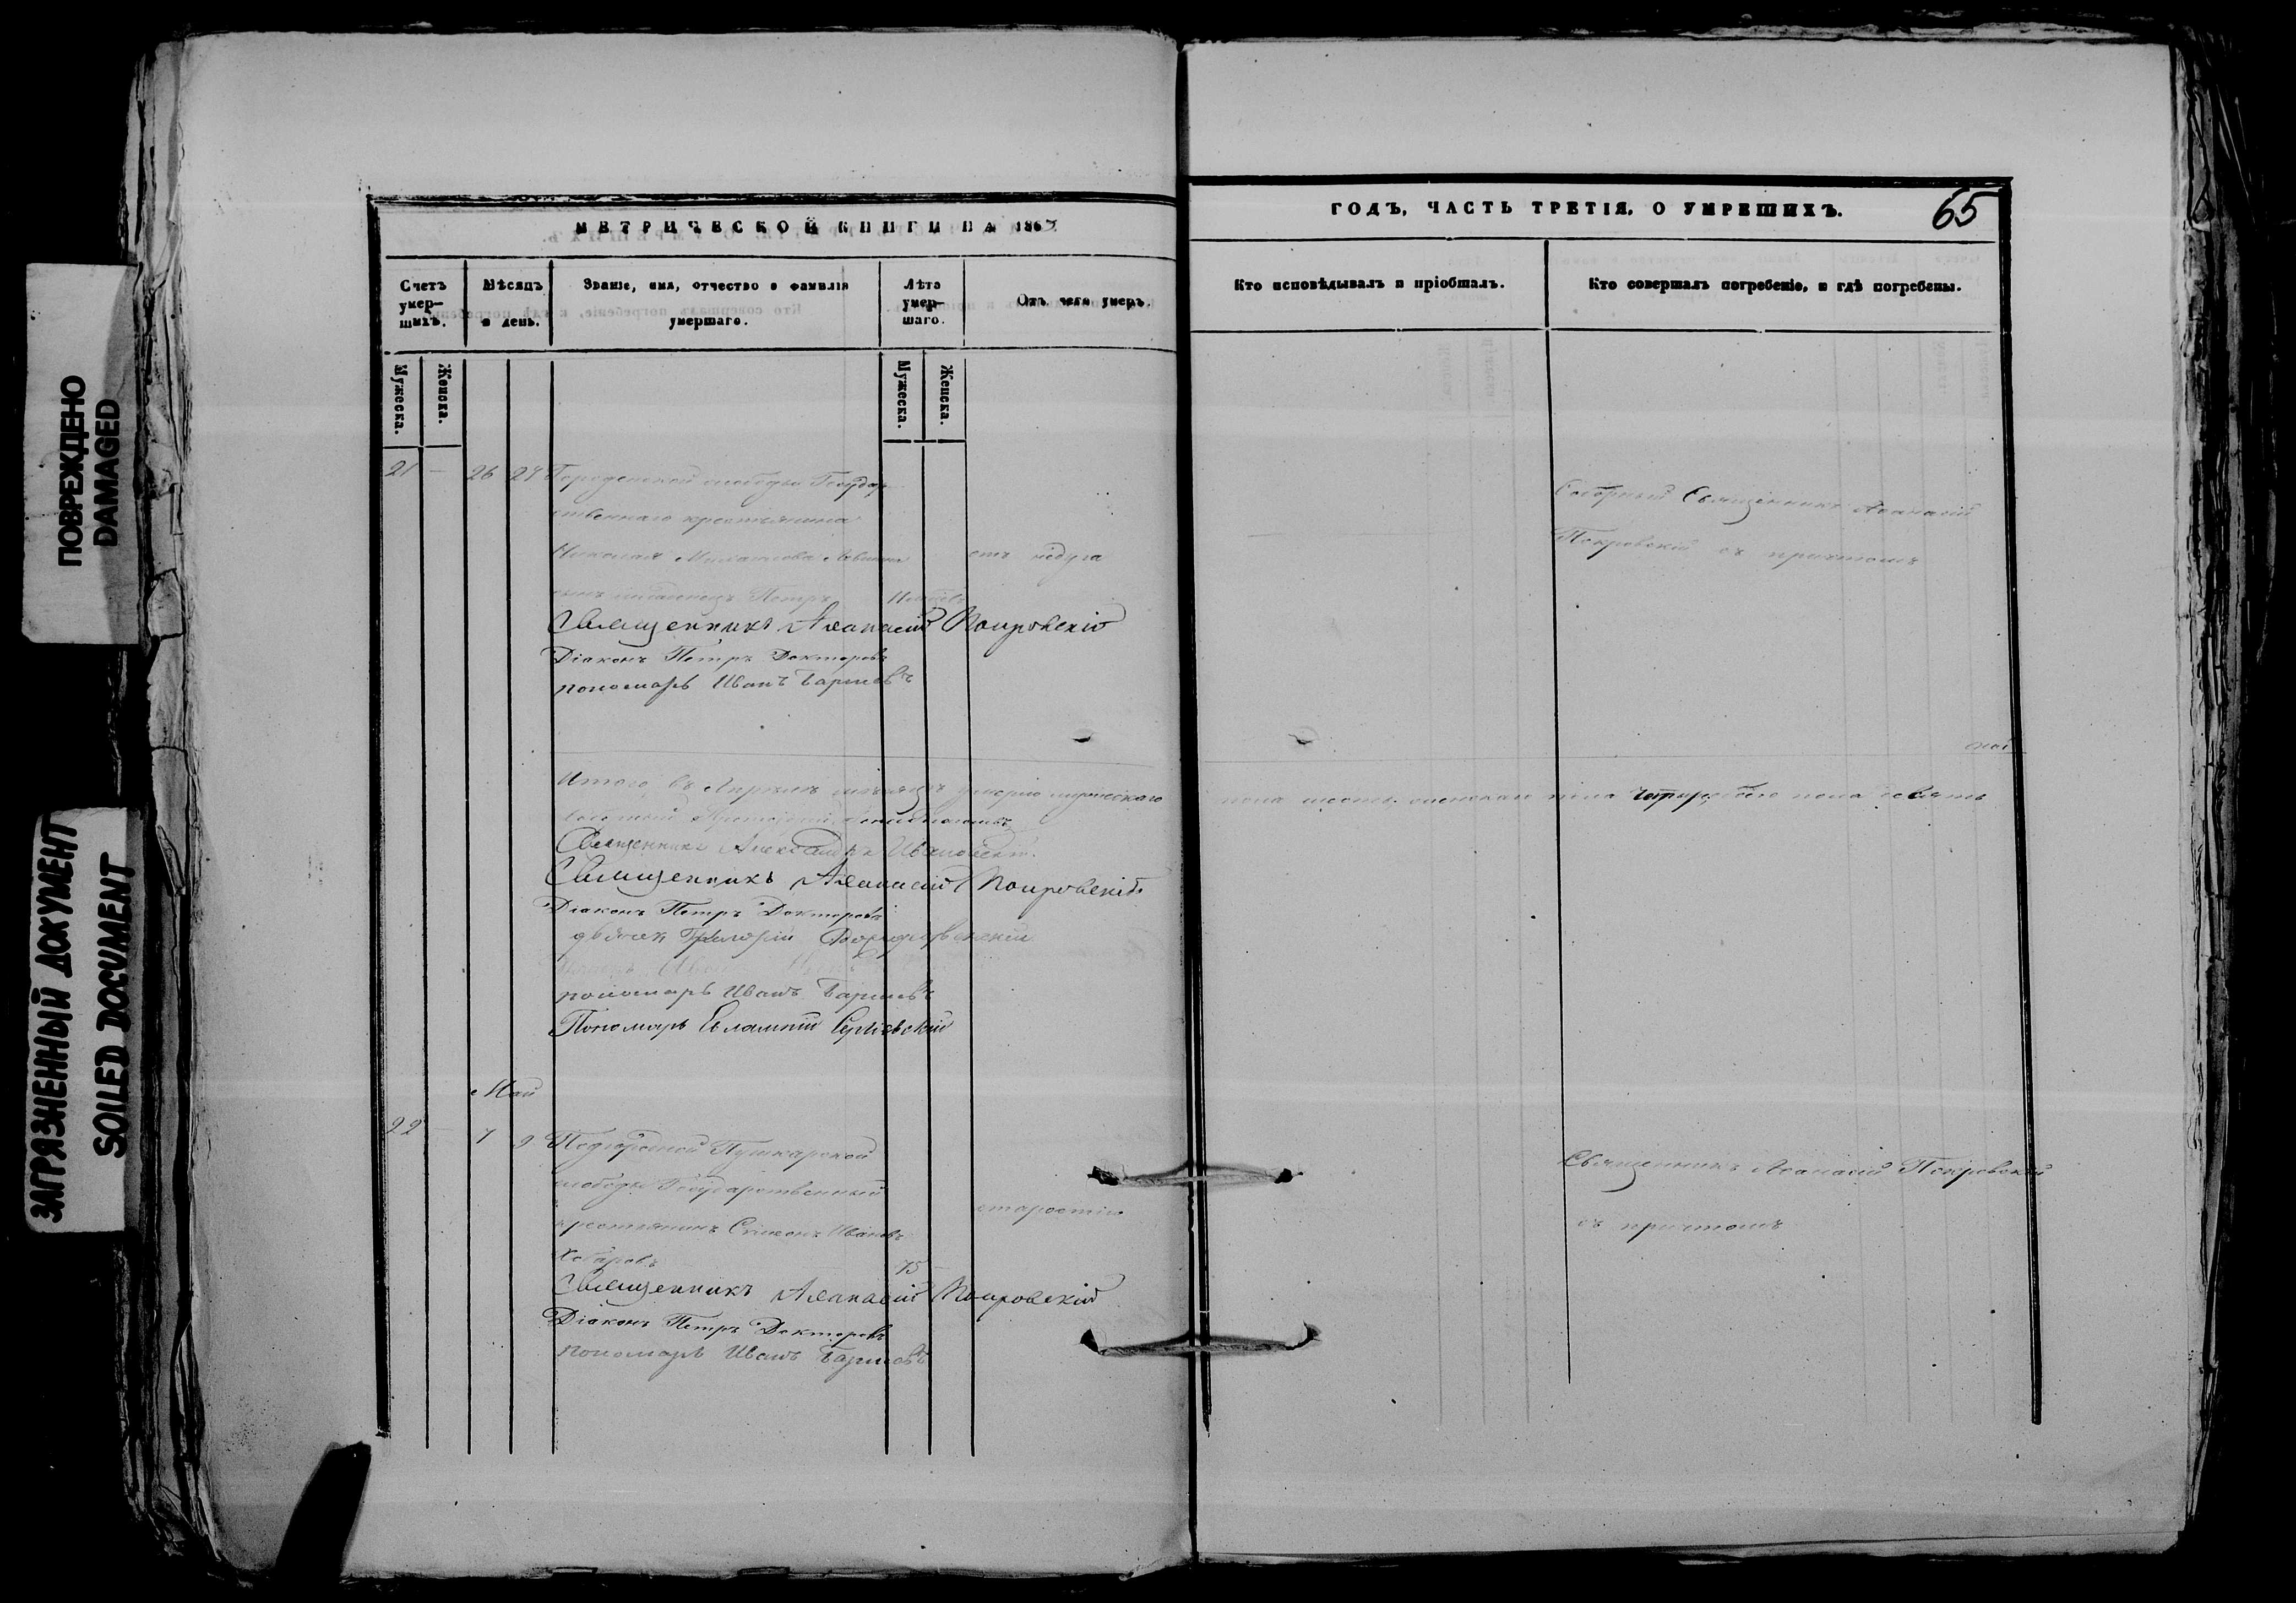 ПОВРЕЖДЕНО
DAMAGED
ЗАГРЯЗНЕННЫЙ ДОКУМЕНТ
SOILED DOCUMENT
МЕТРИЧЕСКОЙ КНИГИ НА 186
Счетъ умер-шихъ.
Мѣсяцъ и день.
Званіе, имя, отчество и фамилія умершаго.
Лѣта умер-шаго.
Отъ чего умеръ.
Мужеска.
Женска.
Мужеска.
Женска.
21 — 26 27 слободы Государ
ственнаго крестьянина
Николая Михайлова
отъ недуга
сынъ младенецъ Петръ
Священникъ Аѳанасій Покровскій
Діаконъ Петръ Докторовъ
пономарь Иванъ
Итого въ Апрѣлѣ мѣсяцѣ умерло мужескаго
Священникъ Александръ Ивановскій.
Священникъ Аѳанасій Покровскій
Діаконъ Петръ Докторовъ
Григорій
пономарь Иванъ
Пономарь Евлампій Сергіевскій
Май
22 — 7 9 Подгородной Пушкарской
слободы Государственный
крестьянинъ Симеонъ Ивановъ
старостію
75
Священникъ Аѳанасій Покровскій
Діаконъ Петръ Докторовъ
пономарь Иванъ
ГОДЪ, ЧАСТЬ ТРЕТІЯ, О УМРЕШИХЪ.
65
Кто исповѣдывалъ и пріобщалъ.
Кто совершалъ погребеніе, и гдѣ погребены.
Соборный Священникъ Аѳанасій
Покровскій съ причтомъ
пола женскаго пола четыре, обоего пола
Священникъ Аѳанасій Покровскій
съ причтомъ